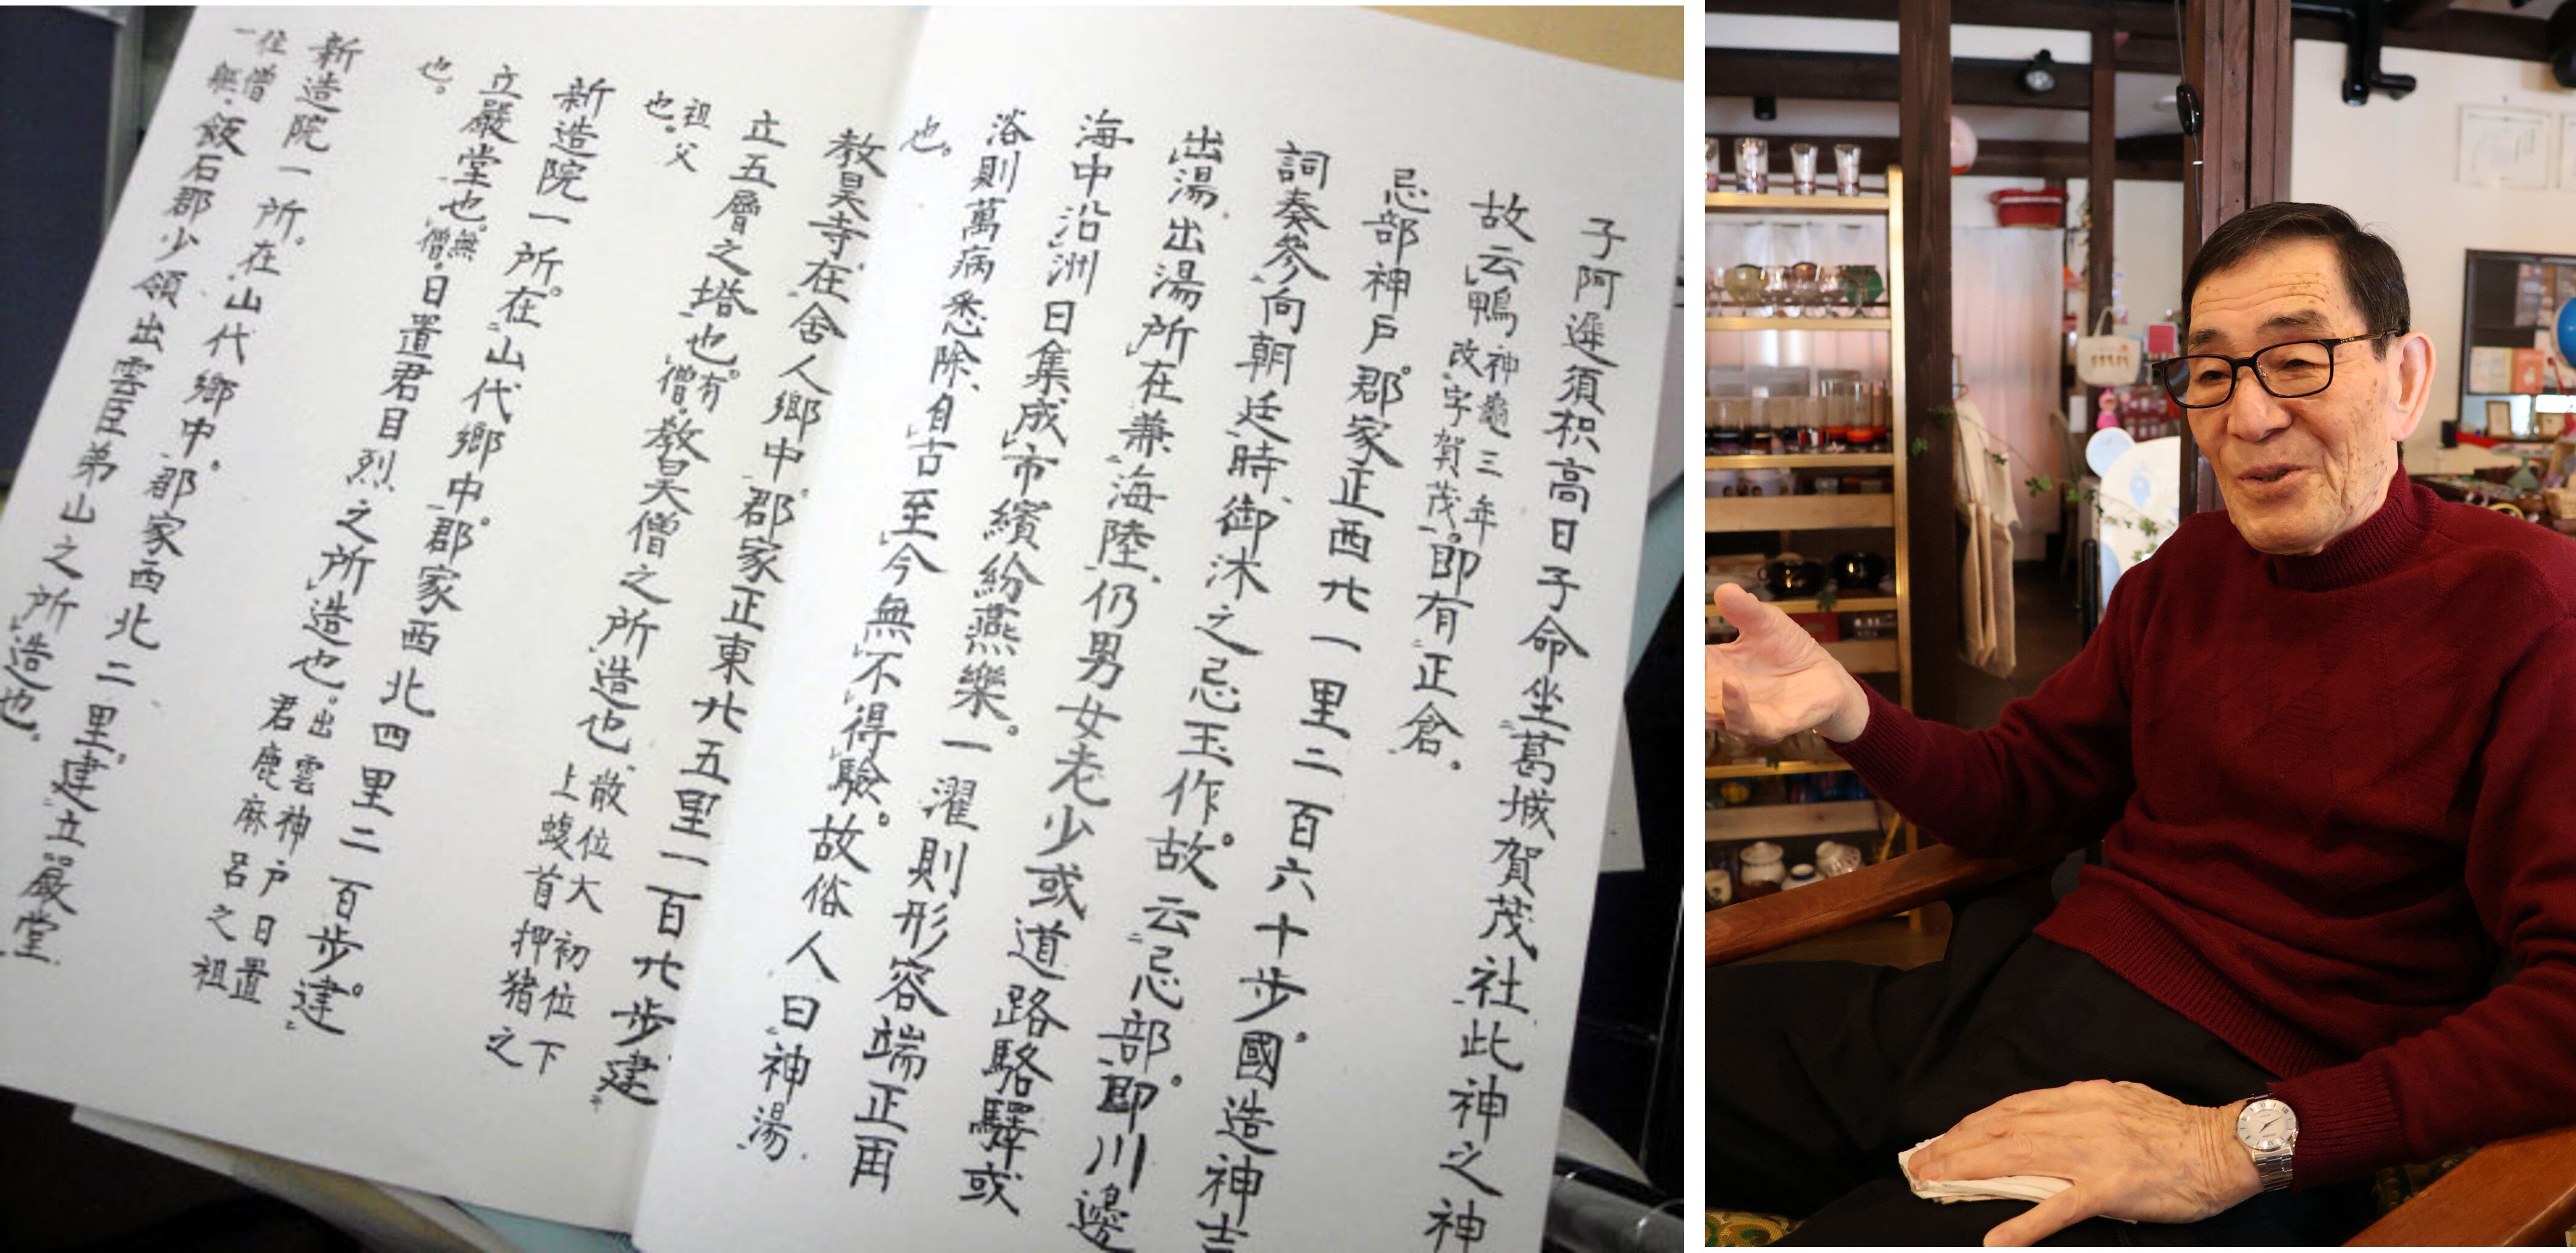 子阿遲須枳高日子命坐葛城賀茂社此神之神
故云鴨神龜三年改字賀茂。即有正倉。
忌部神戸。郡家正西廿一里二百六十步。國造神吉
詞奏參向朝廷時御沐之忌玉作。故云忌部。即川邊
出湯。出湯所在兼海陸、仍男女老少或道路駱驛或
海中沿洲日集成市繽紛燕樂。一濯則形容端正再
浴則萬病悉除、自古至今無不得驗。故俗人曰神湯
也。
教昊寺在舍人鄉中。郡家正東廿五里一百廿步建
立五層之塔也。有僧。教昊僧之所造也、散位大初位下上蝮首押猪之
祖父也。
新造院一所。在山代鄉中。郡家西北四里二百步。建
立嚴堂也。無僧。日置君目烈之所造也。出雲神戸日置君鹿麻呂之祖
也。
新造院一所。在山代鄉中。郡家西北二里。建立嚴堂
住僧一躯。飯石郡少領出雲臣弟山之所造也。